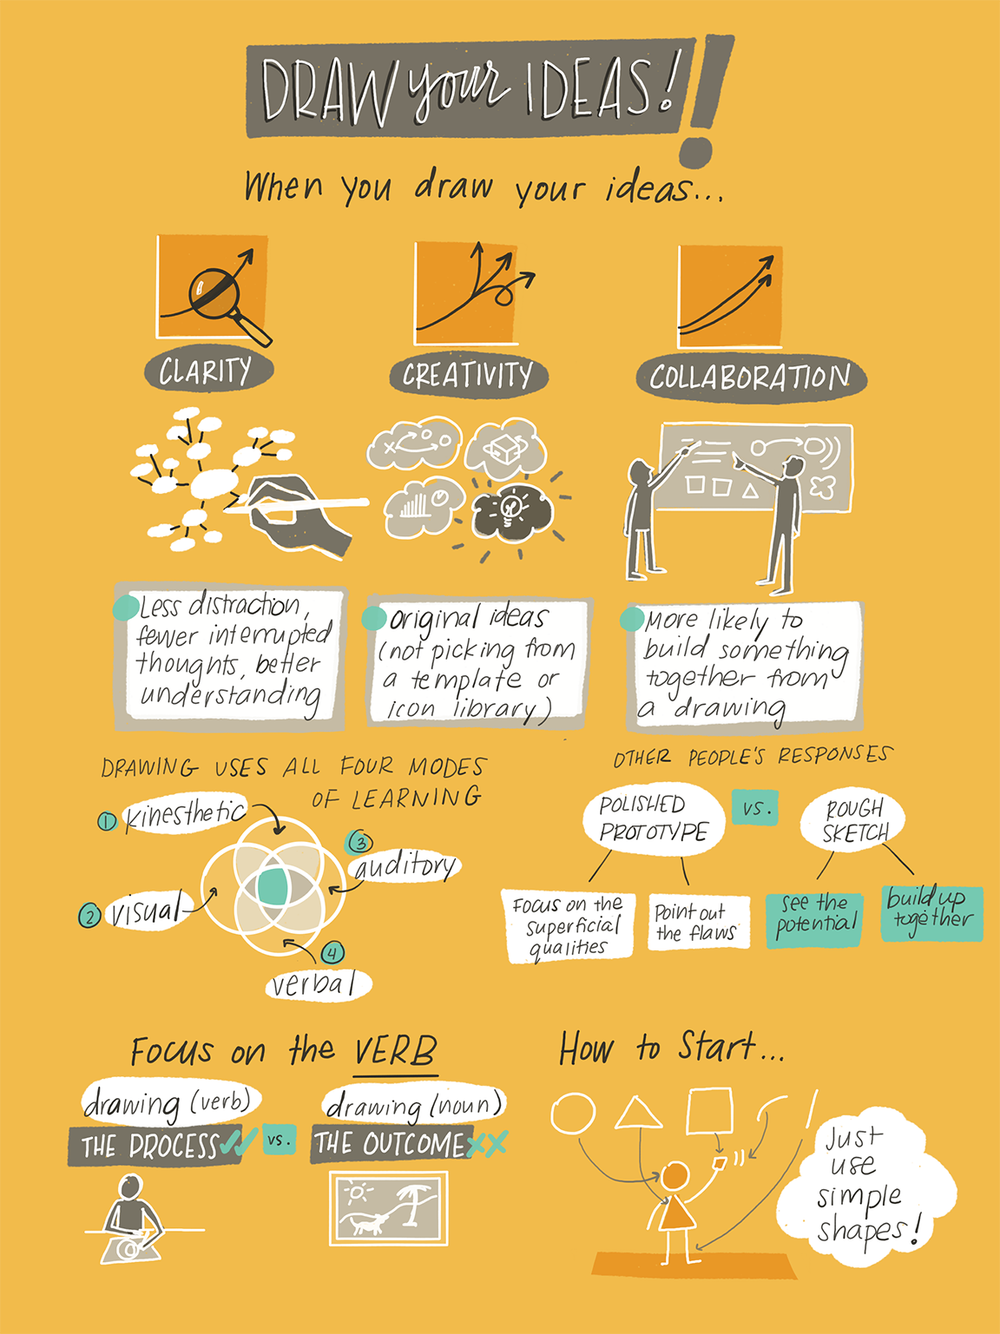 DRAW your IDEAS!!
When you draw your ideas...
CLARITY
CREATIVITY
COLLABORATION
Less distraction,
fewer interrupted
thoughts, better
understanding
original ideas
(not picking from
a template or
icon library)
More likely to
build something
together from
a drawing
DRAWING USES ALL FOUR MODES
OF LEARNING
1 kinesthetic
3
auditory
2 visual
4
verbal
OTHER PEOPLE'S RESPONSES
POLISHED
PROTOTYPE
vs.
ROUGH
SKETCH
Focus on the
superficial
qualities
Point out
the flaws
see the
potential
build up
together
Focus on the VERB
drawing (verb)
THE PROCESS
vs.
drawing (noun)
THE OUTCOME
How to Start...
Just
use
simple
shapes!